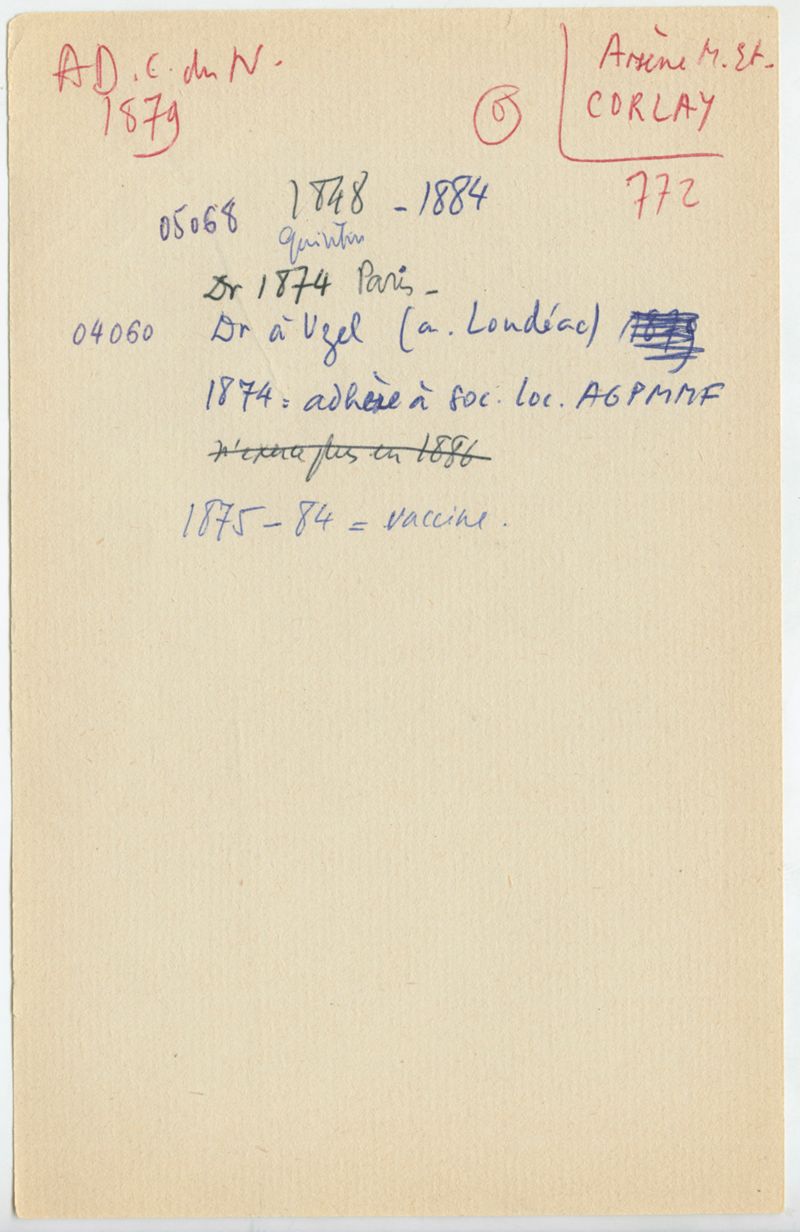 AD. C. du N.
1879
Arsène M. Et.
CORLAY
772
05068 1848 - 1884
Quintin
Dr 1874 Paris -
04060 Dr à Uzel (a. Loudéac) 1879
1874 = adhère à soc. loc. AGPMMF
n'exerce plus en 1886
1875 - 84 = vaccine.